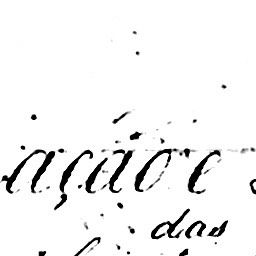 ação e
das